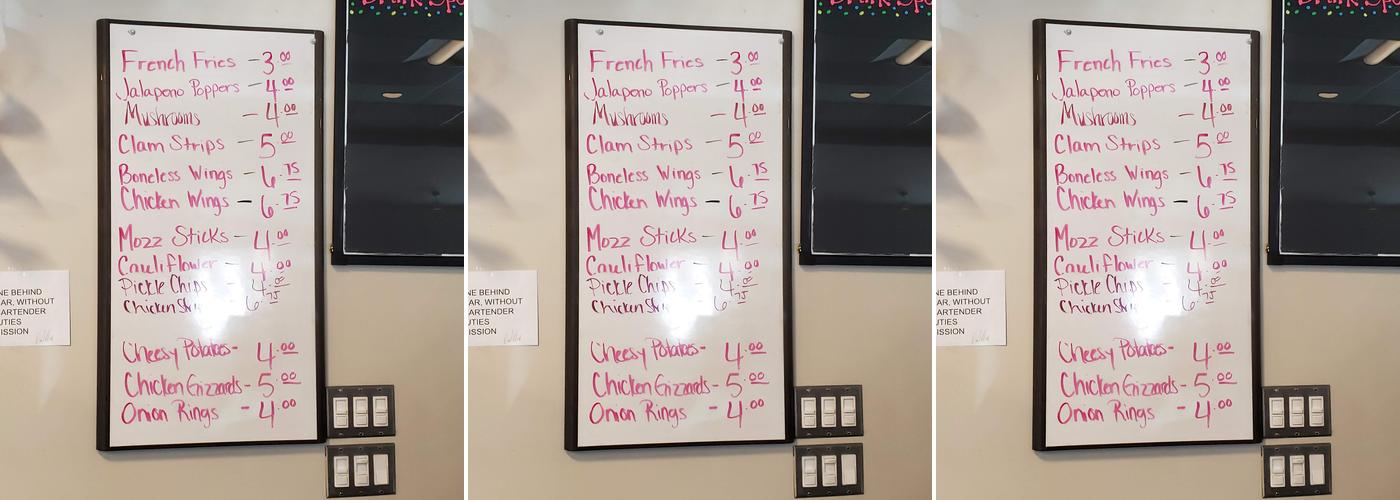 French Fries - 3.00
Jalapeno Poppers - 4.00
Mushrooms - 4.00
Clam Strips - 5.00
Boneless Wings - 6.75
Chicken Wings - 6.75
Mozz Sticks - 4.00
Cauliflower - 4.00
Pickle Chips - 4.00
Chicken 6.75
Cheesy Potatoes - 4.00
Chicken Gizzards - 5.00
Onion Rings - 4.00
NE BEHIND
AR, WITHOUT
ARTENDER
UTIES
ISSION
French Fries - 3.00
Jalapeno Poppers - 4.00
Mushrooms - 4.00
Clam Strips - 5.00
Boneless Wings - 6.75
Chicken Wings - 6.75
Mozz Sticks - 4.00
Cauliflower - 4.00
Pickle Chips - 4.00
Chicken 6.75
Cheesy Potatoes - 4.00
Chicken Gizzards - 5.00
Onion Rings - 4.00
NE BEHIND
AR, WITHOUT
ARTENDER
UTIES
ISSION
French Fries - 3.00
Jalapeno Poppers - 4.00
Mushrooms - 4.00
Clam Strips - 5.00
Boneless Wings - 6.75
Chicken Wings - 6.75
Mozz Sticks - 4.00
Cauliflower - 4.00
Pickle Chips - 4.00
Chicken 6.75
Cheesy Potatoes - 4.00
Chicken Gizzards - 5.00
Onion Rings - 4.00
NE BEHIND
AR, WITHOUT
ARTENDER
UTIES
ISSION